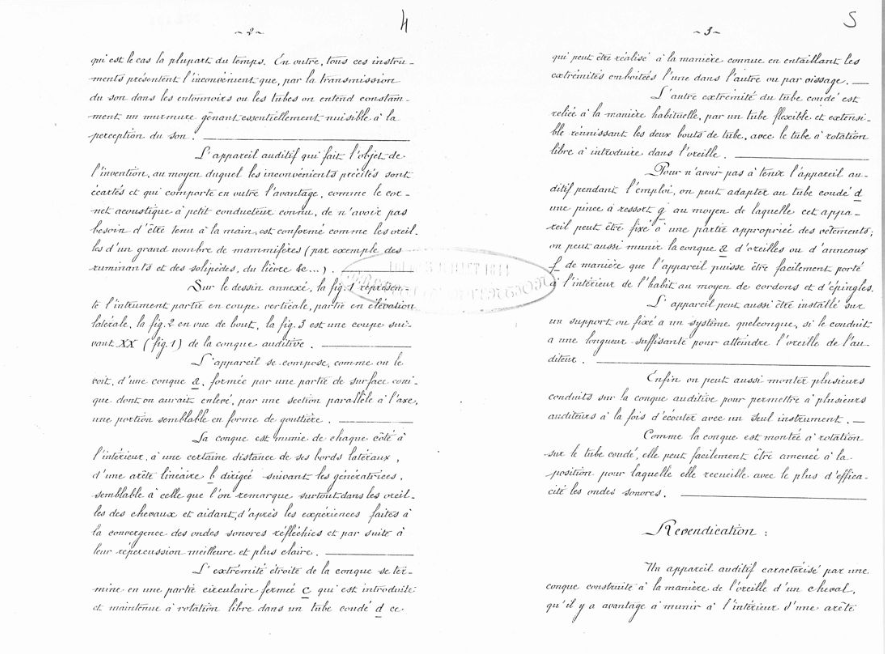 - 2 -
4
qui est le cas la plupart du temps. En outre, tous ces instru-
ments présentent l'inconvénient que, par la transmission
du son dans les entonnoirs ou les tubes on entend constam-
ment un murmure gênant essentiellement nuisible à la
perception du son.
L'appareil auditif qui fait l'objet de
l'invention, au moyen duquel les inconvénients précités sont
écartés et qui comporte en outre l'avantage, comme le cor-
net acoustique à petit conducteur connu, de n'avoir pas
besoin d'être tenu à la main, est conformé comme les oreil-
les d'un grand nombre de mammifères (par exemple des
ruminants et des solipèdes, du lièvre &c...).
Sur le dessin annexé, la fig. 1 représen-
te l'intrument partie en coupe verticale, partie en élévation
latérale, la fig. 2 en vue de bout, la fig. 3 est une coupe sui-
vant XX (fig. 1) de la conque auditive.
L'appareil se compose, comme on le
voit, d'une conque a, formée par une partie de surface coni-
que dont on aurait enlevé, par une section parallèle à l'axe,
une portion semblable en forme de gouttière.
La conque est munie de chaque côté à
l'intérieur, à une certaine distance de ses bords latéraux,
d'une arête linéaire b dirigée suivant les génératrices,
semblable à celle que l'on remarque surtout dans les oreil-
les des chevaux et aidant, d'après les expériences faites à
la convergence des ondes sonores réfléchies et par suite à
leur répercussion meilleure et plus claire.
L'extrémité étroite de la conque se ter-
mine en une partie circulaire fermée c qui est introduite
et maintenue à rotation libre dans un tube coudé d ce
- 3 -
5
qui peut être réalisé à la manière connue en entaillant les
extrémités emboîtées l'une dans l'autre ou par vissage.
L'autre extrémité du tube coudé est
reliée à la manière habituelle, par un tube flexible et extensi-
ble réunissant les deux bouts de tube, avec le tube à rotation
libre à introduire dans l'oreille.
Pour n'avoir pas à tenir l'appareil au-
ditif pendant l'emploi, on peut adapter au tube coudé d
une pince à ressort g au moyen de laquelle cet appa-
reil peut être fixé à une partie appropriée des vêtements;
on peut aussi munir la conque a d'oreilles ou d'anneaux
f de manière que l'appareil puisse être facilement porté
à l'intérieur de l'habit au moyen de cordons et d'épingles.
L'appareil peut aussi être installé sur
un support ou fixé a un système quelconque, si le conduit
a une longueur suffisante pour atteindre l'oreille de l'au-
diteur.
Enfin on peut aussi monter plusieurs
conduits sur la conque auditive pour permettre à plusieurs
auditeurs à la fois d'écouter avec un seul instrument.
Comme la conque est montée à rotation
sur le tube coudé, elle peut facilement être amenée à la
position pour laquelle elle recueille avec le plus d'effica-
cité les ondes sonores.
Revendication :
Un appareil auditif caractérisé par une
conque construite à la manière de l'oreille d'un cheval,
qu'il y a avantage à munir à l'intérieur d'une arête